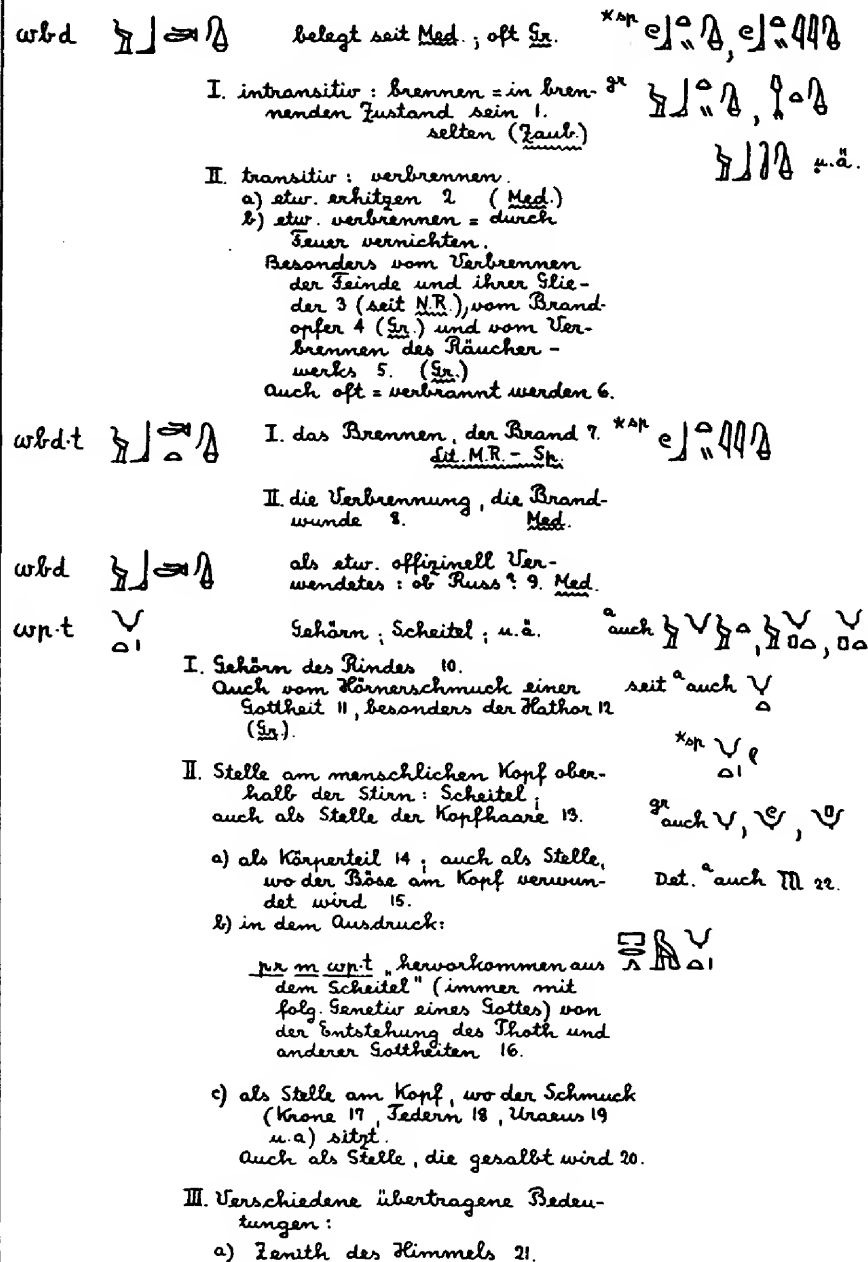 wbd 𓅱𓃀𓂧𓊮 belegt seit Med.; oft Gr. *sp
I. intransitiv: brennen = in bren- gr
nenden Zustand sein 1.
selten (Zaub.)
u.ä.
II. transitiv: verbrennen.
a) etw. erhitzen 2 (Med.)
b) etw. verbrennen = durch
Feuer vernichten.
Besonders vom Verbrennen
der Feinde und ihrer Glie-
der 3 (seit N.R.), vom Brand-
opfer 4 (Gr.) und vom Ver-
brennen des Räucher-
werks 5. (Gr.)
Auch oft = verbrannt werden 6.
wbd·t I. das Brennen, der Brand 7. *sp
Lit. M.R. - Sp.
II. die Verbrennung, die Brand-
wunde 8. Med.
wbd als etw. offizinell Ver-
wendetes: ob Russ? 9. Med.
wp·t Gehörn; Scheitel; u.ä. a auch
I. Gehörn des Rindes 10.
Auch vom Hörnerschmuck einer seit a auch
Gottheit 11, besonders der Hathor 12
(Gr.).
*sp
II. Stelle am menschlichen Kopf ober-
halb der Stirn: Scheitel;
auch als Stelle der Kopfhaare 13. gr auch
a) als Körperteil 14; auch als Stelle, Det. a auch 22.
wo der Böse am Kopf verwun-
det wird 15.
b) in dem Ausdruck:
pr m wp·t „hervorkommen aus
dem Scheitel" (immer mit
folg. Genetiv eines Gottes) von
der Entstehung des Thoth und
anderer Gottheiten 16.
c) als Stelle am Kopf, wo der Schmuck
(Krone 17, Federn 18, Uraeus 19
u.a) sitzt.
Auch als Stelle, die gesalbt wird 20.
III. Verschiedene übertragene Bedeu-
tungen:
a) Zenith des Himmels 21.